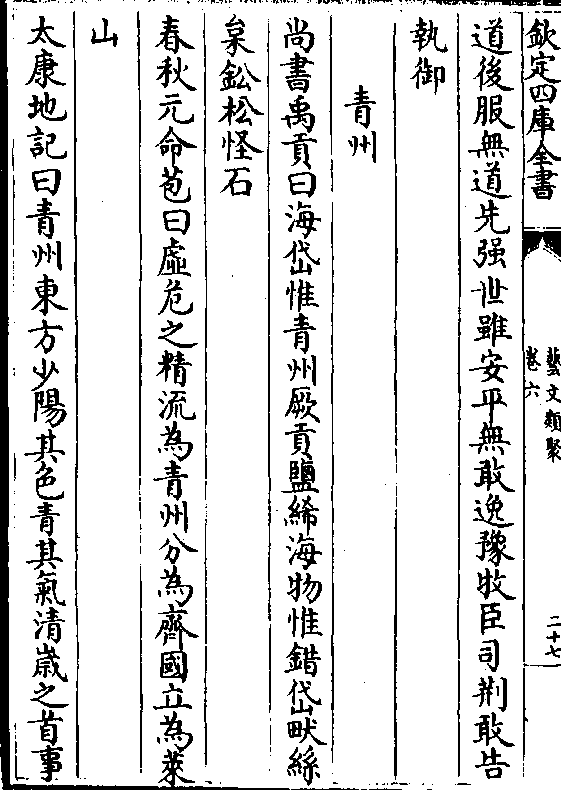 欽定四庫全書
藝文類聚
卷六
二十七
道後服無道先强世雖安平無敢逸豫牧臣司荆敢告
執御
青州
尚書禹貢曰海岱惟青州厥貢鹽絺海物惟錯岱畎絲
枲鈆松怪石
春秋元命苞曰虛危之精流為青州分為齊國立為萊
山
太康地記曰青州東方少陽其色青其氣清嵗之首事